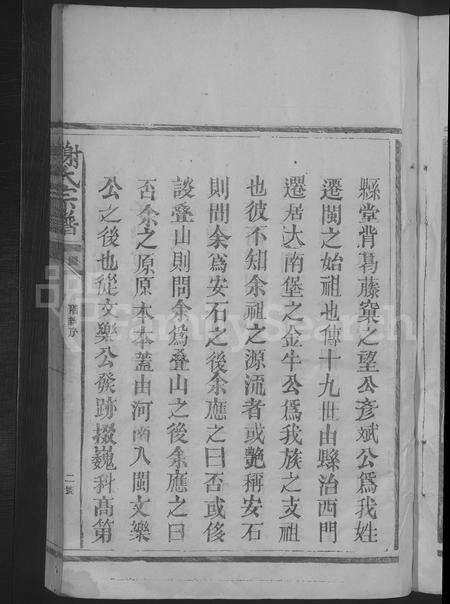 縣堂背葛藤窠之望公彥斌公爲我姓
遷閩之始祖也傳十九世由縣治西門
遷居大南堡之金牛公爲我族之支祖
也彼不知余祖之源流者或艷稱安石
則問余爲安石之後余應之曰否或侈
談叠山則問余爲叠山之後余應之曰
否余之原原本本蓋由河南入閩文樂
公之後也從文樂公發跡掇巍科高第
謝氏宗譜
序
二
FamilySearch